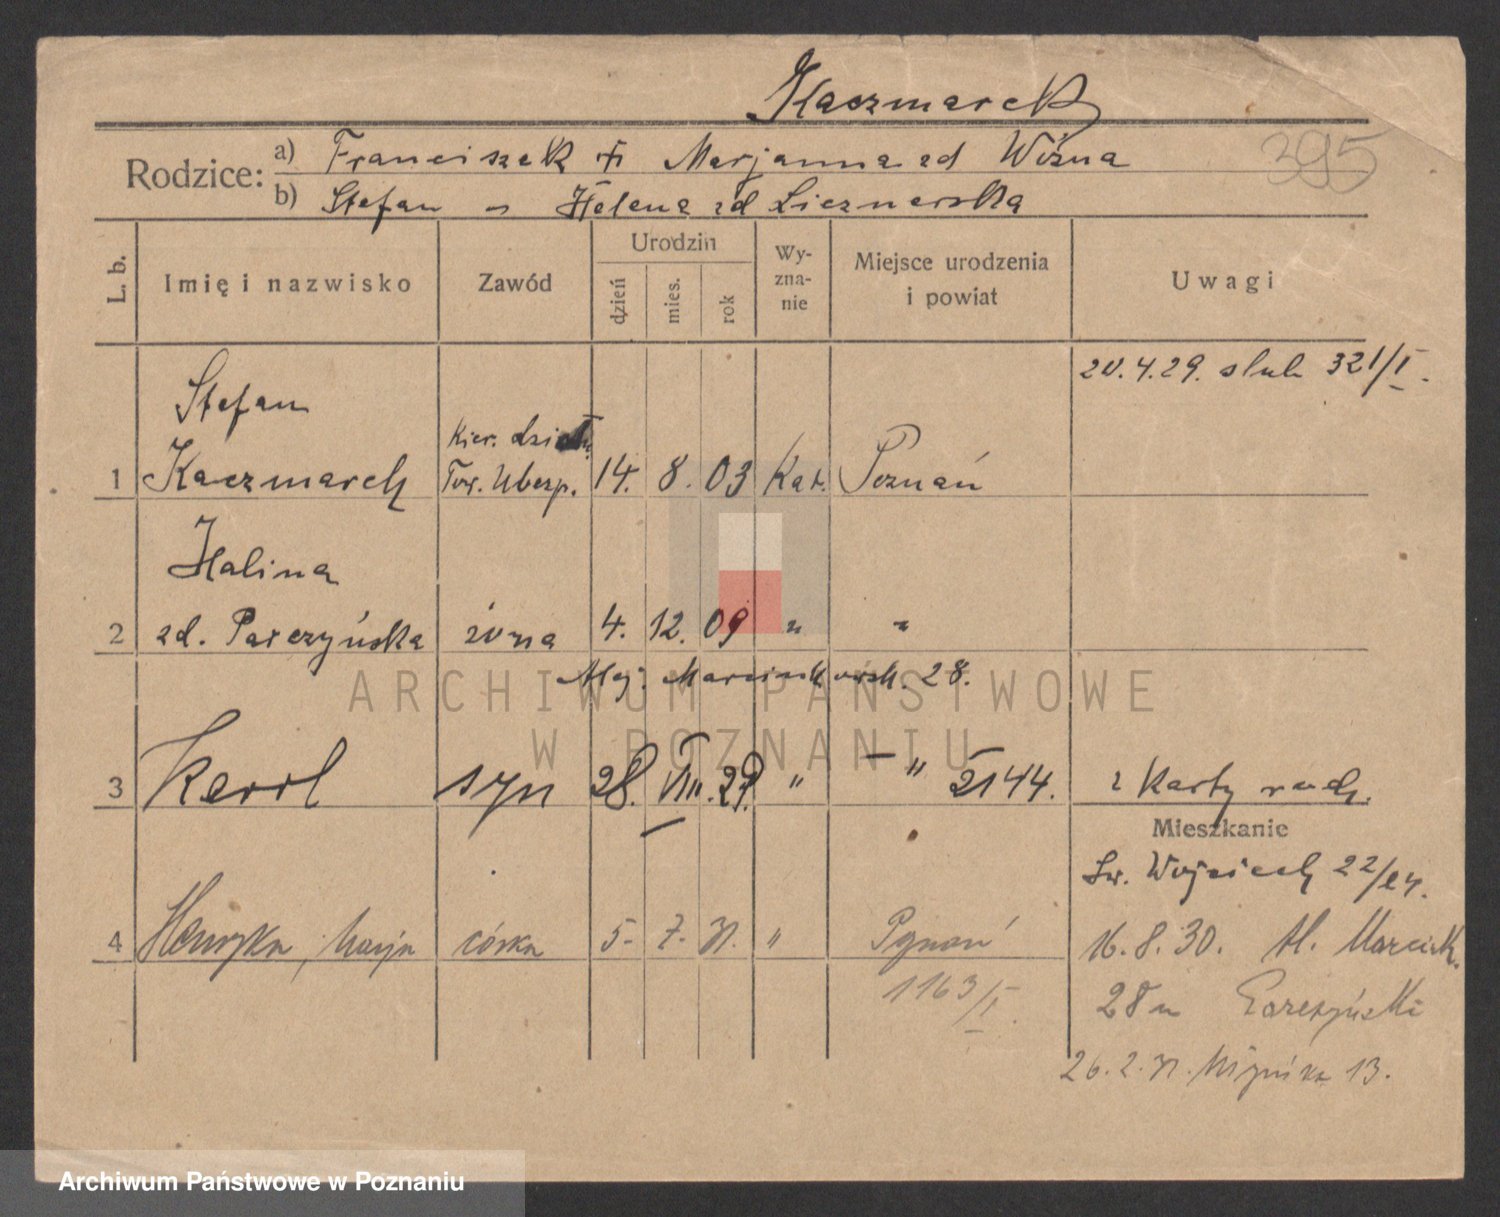 Kaczmarek
395
Rodzice: a) Franciszek + Marjanna zd Woźna
b) Stefan " Helena zd Licznerska
L. b. Imię i nazwisko Zawód Urodzin dzień mies. rok Wyznanie Miejsce urodzenia i powiat Uwagi
20.4.29. slub 321/I.
Stefan
Kier. działu
1 Kaczmarek Tow. Ubezp. 14. 8. 03 Kat. Poznań
Halina
2 zd. Parczyńska żona 4. 12. 09 " "
Alej. Marcinkowsk. 28.
3 Karol syn 28. VII. 29. " " 2144. z Karty rodz.
Mieszkanie
Św. Wojciech 22/
4 Henryka, Marja córka 5. 7. 31. " Poznań
16.8.30. Al. Marcink.
1163/I.
28 Parczyński
26.2.31. 13.
ARCHIWUM PAŃSTWOWE
W POZNANIU
Archiwum Państwowe w Poznaniu